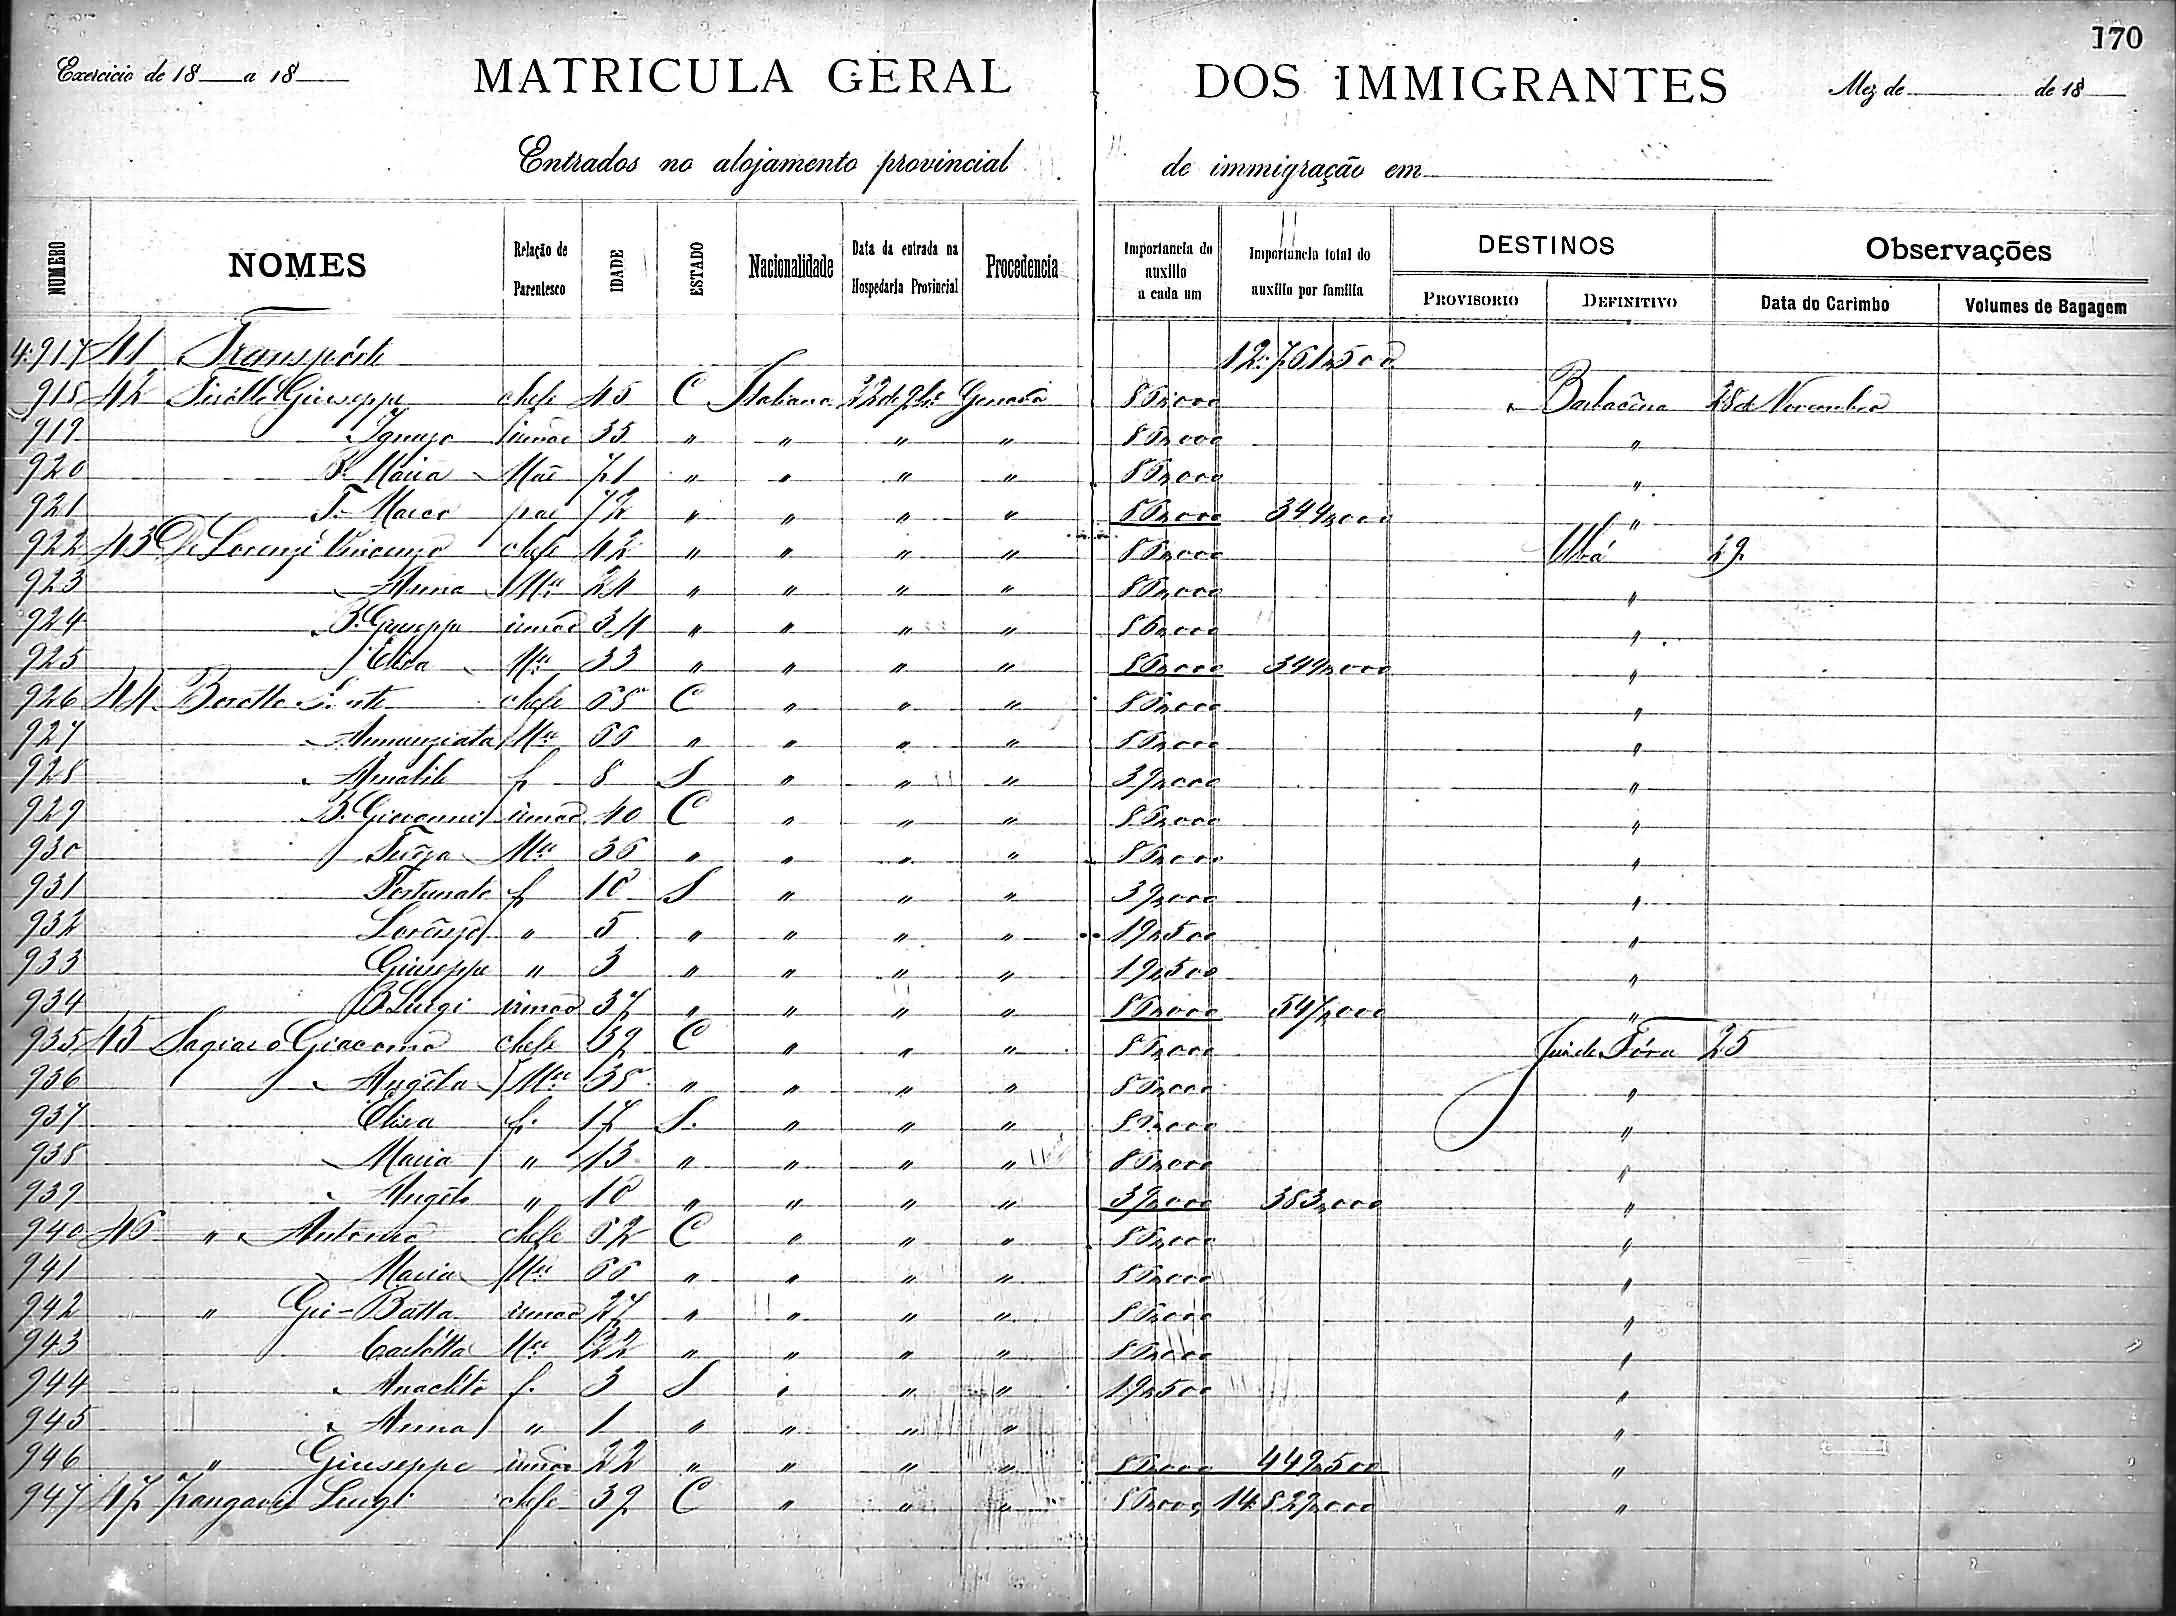 170
Exercicio de 18 a 18 MATRICULA GERAL DOS IMMIGRANTES Mez de de 18
Entrados no alojamento provincial de immigração em
NUMERO NOMES Relação de Parentesco IDADE ESTADO Nacionalidade Data da entrada na Hospedaria Provincial Procedencia Importancia do auxilio a cada um Importancia total do auxilio por familia DESTINOS PROVISORIO DEFINITIVO Observações Data do Carimbo Volumes de Bagagem
4:917 41 Transpórte 12:761$500
918 42 Giuseppe chefe 45 C Italiana 22 de 9br.º Genova 86$000 Barbacena 28 de Novembro
919 irmão 35 " " " " 86$000 "
920 Maria Mãe 71 " " " " 86$000 "
921 T. Marco pae 72 " " " " 86$000 344$000 "
922 43 De Lorenzi Vincenzo chefe 42 " " " " 86$000 Ubá 29
923 Anna Mer 24 " " " " 86$000 "
924 Giuseppe irmão 34 " " " " 86$000 "
925 Elisa Mer 33 " " " " 86$000 344$000 "
926 44 chefe C " " " 86$000 "
927 Annunziata Mer " " " " 86$000 "
928 Amabile f 8 S " " " 39$000 "
929 B. Giovanni irmão 40 C " " " 86$000 "
930 Mer 36 " " " " 86$000 "
931 Fortunato f 10 S " " " 39$000 "
932 Lorenzo " 5 " " " " 19$500 "
933 Giuseppe " 3 " " " " 19$500 "
934 B Luigi irmão 37 " " " " 86$000 547$000 "
935 45 Giacomo chefe 39 C " " " 86$000 Juiz de Fóra 25
936 Angéla Mer 38 " " " " 86$000 "
937 Elisa f. 17 S. " " " 86$000 "
938 Maria " 13 " " " " 86$000 "
939 Angélo " 10 " " " " 39$000 383$000 "
940 46 " Antonio chefe C " " " 86$000 "
941 Maria Mer " " " " 86$000 "
942 " Gio-Batta irmão 27 " " " " 86$000 "
943 Carlótta Mer 22 " " " " 86$000 "
944 Anacléto f. 3 S " " " 19$500 "
945 Anna " 1 " " " " "
946 " Giuseppe irmão 22 " " " " 86$000 449$500 "
947 47 Luigi chefe 39 C " " " 86$000 14:829$000 "